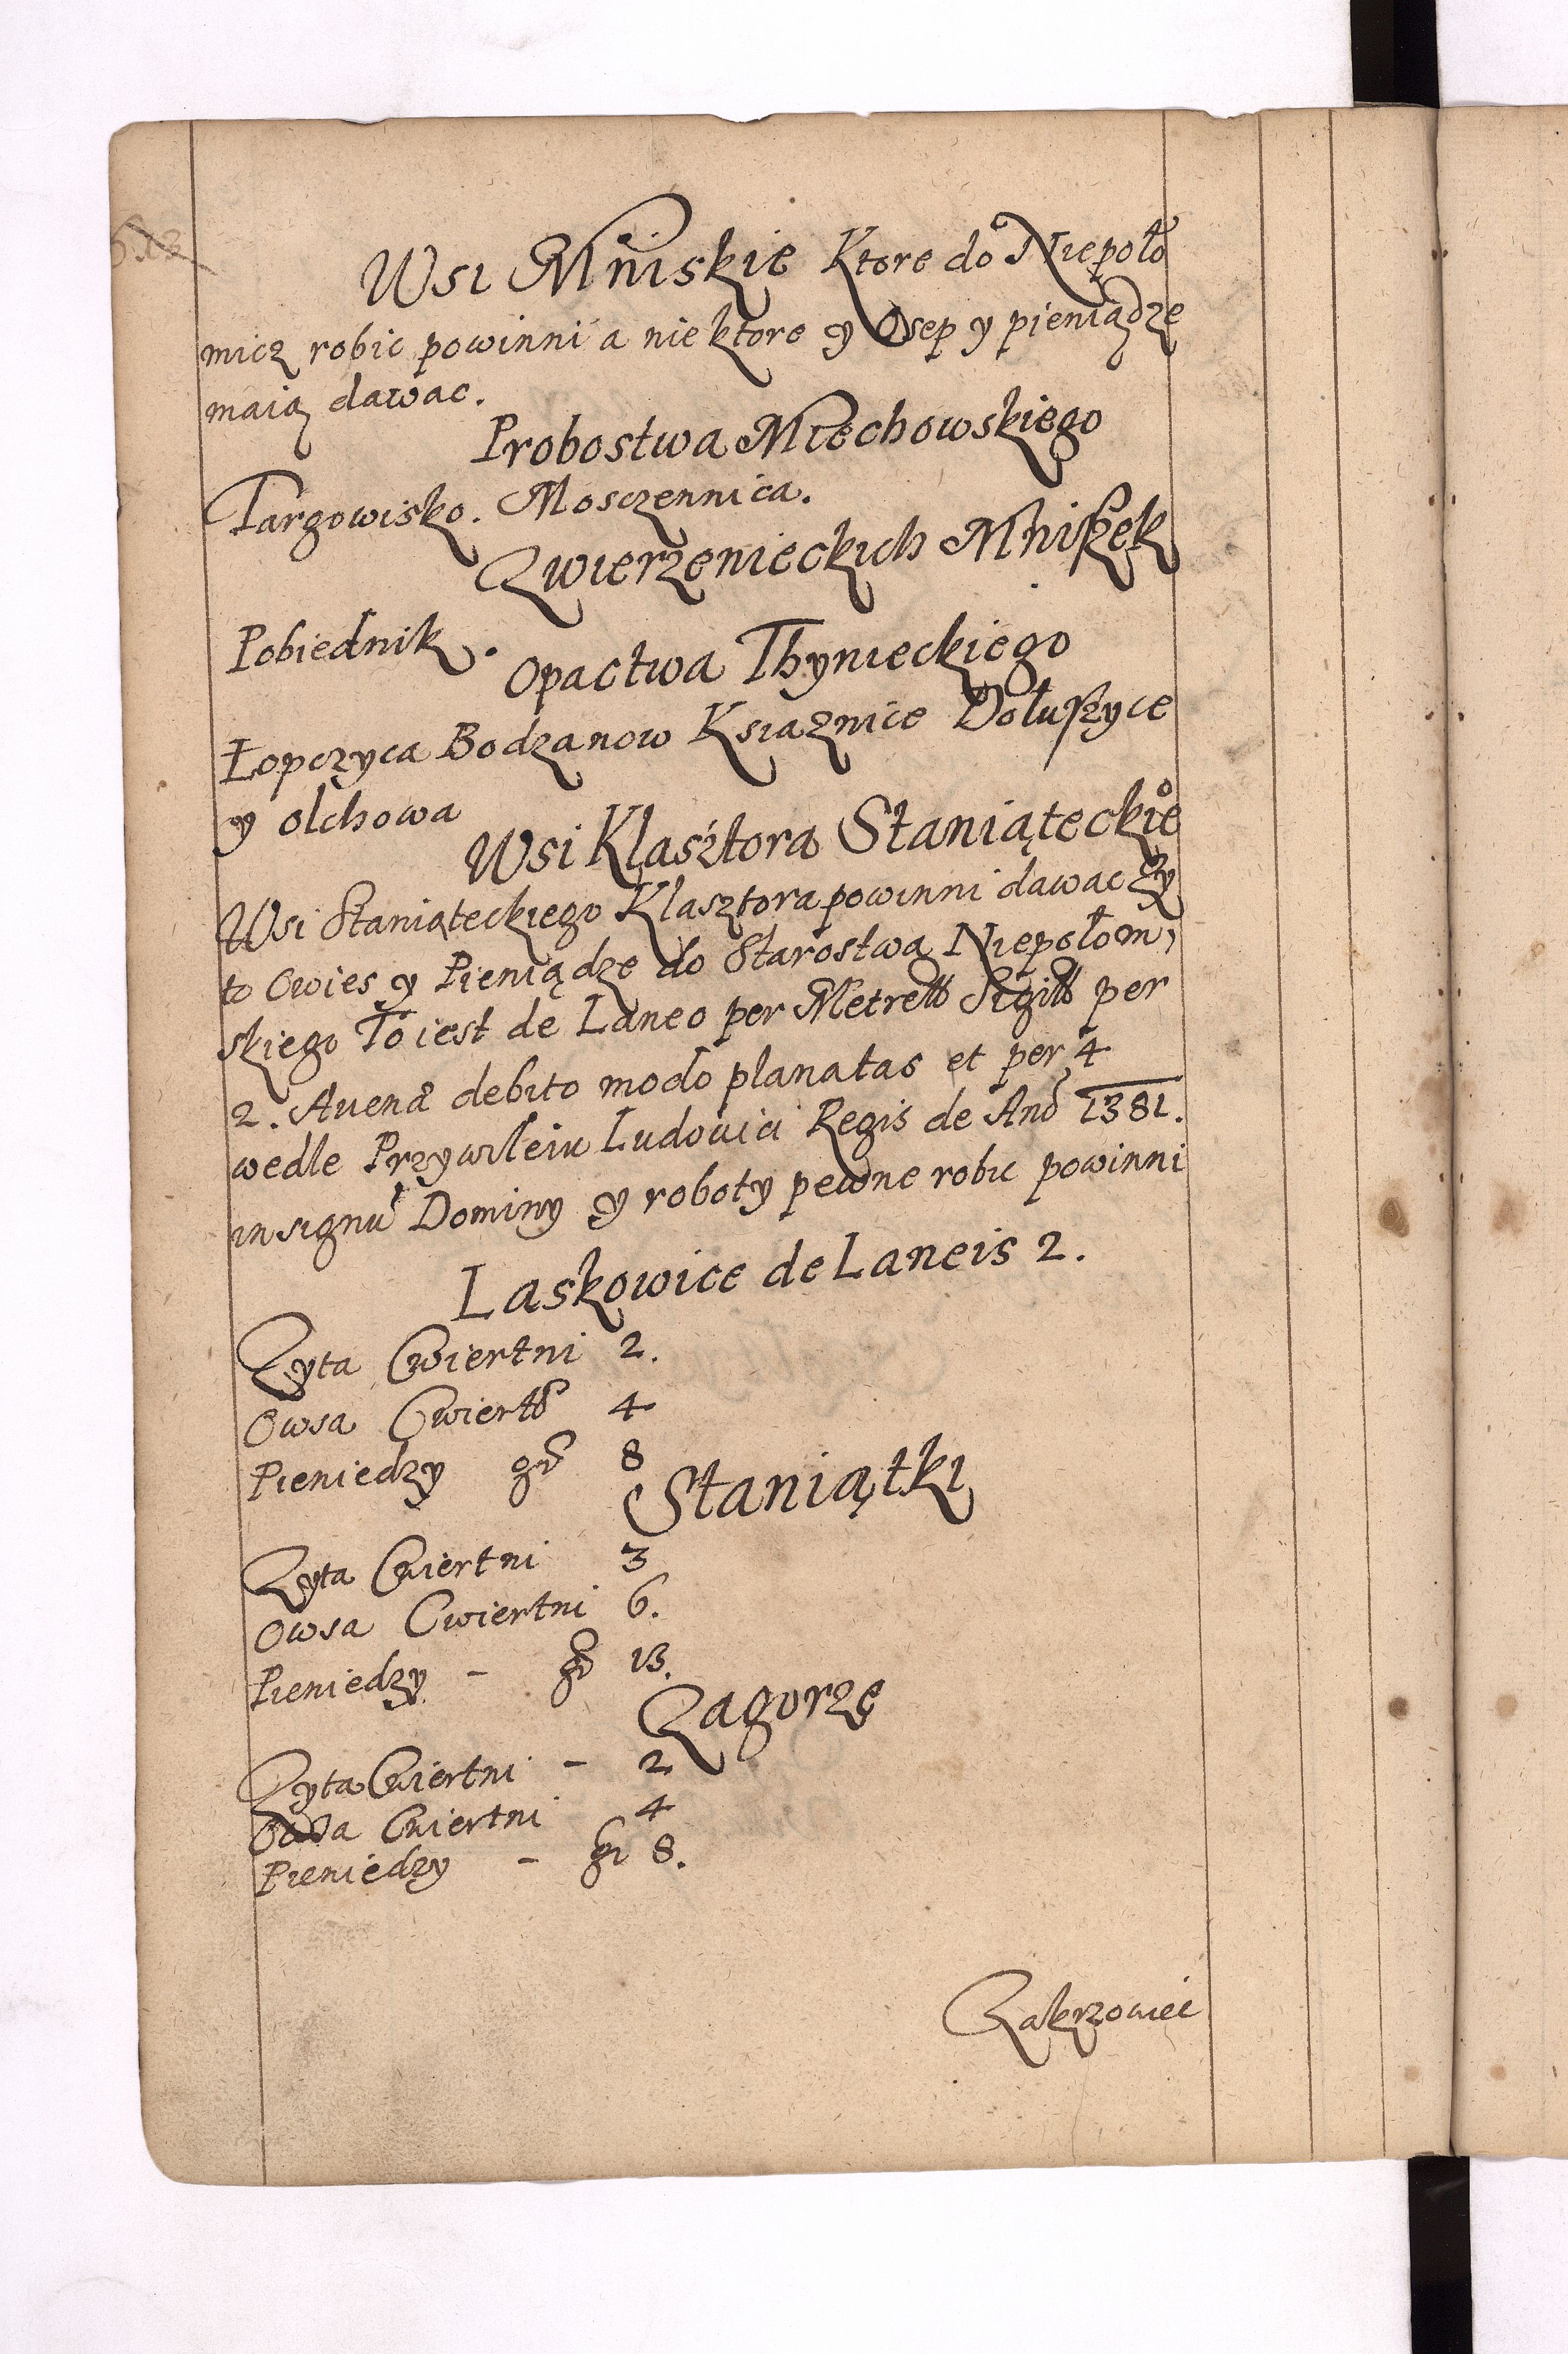 Wsi Mniskie Ktore do Niepoło
micz robic powinni a niektore y Osep y pieniądze
maią dawac.
Probostwa Miechowskiego
Targowisko. Mosczennica.
Zwierzenieckich Mniszek
Pobiednik.
Opactwa Thynieckiego
Łopczyca Bodzanow Ksiaznice Dołuszyce
y olchowa
Wsi Klasztora Staniąteckie°
Wsi Staniąteckiego Klasztora powinni dawac Zy
to Owies y Pieniądze do Starostwa Niepołom,
skiego To iest de Laneo per Metret Sigill per
2. Auenæ debito modo planatas et per 4
wedle Przywileiu Ludouici Regis de Ano 1381.
in signu Dominy y roboty pewne robic powinni
Laskowice de Laneis 2.
Zyta Cwiertni 2.
Owsa Cwiert 4
Pieniedzy gr 8
Staniątki
Zyta Cwiertni 3
Owsa Cwiertni 6.
Pieniedzy - gr 13.
Zagorze
Zyta Cwiertni - 2
Owsa Cwiertni 4
Pieniedzy - gr 8.
Zakrzowiec